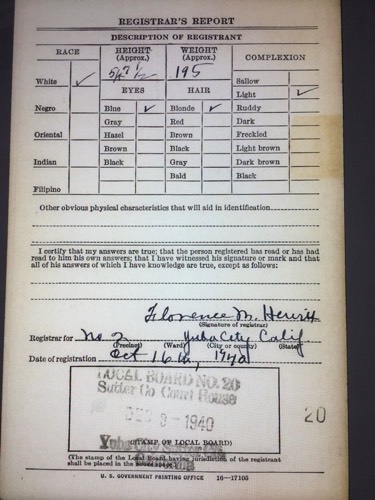 REGISTRAR'S REPORT
DESCRIPTION OF REGISTRANT
RACE HEIGHT (Approx.) WEIGHT (Approx.) COMPLEXION
5/7 1/2 195
White ✓ Sallow
EYES HAIR Light ✓
Negro Blue ✓ Blonde ✓ Ruddy
Gray Red Dark
Oriental Hazel Brown Freckled
Brown Black Light brown
Indian Black Gray Dark brown
Bald Black
Filipino
Other obvious physical characteristics that will aid in identification
I certify that my answers are true; that the person registered has read or has had
read to him his own answers; that I have witnessed his signature or mark and that
all of his answers of which I have knowledge are true, except as follows:
Florence M. Hewitt
(Signature of registrar)
Registrar for No. 2 Yuba City Calif.
(Precinct) (Ward) (City or county) (State)
Date of registration Oct 16th, 1940
LOCAL BOARD NO. 20
Sutter Co Court House
DEC 9-1940
20
Yuba City Sutter Co.
(STAMP OF LOCAL BOARD)
(The stamp of the Local Board having jurisdiction of the registrant
shall be placed in the above space.)
U. S. GOVERNMENT PRINTING OFFICE 16—17105